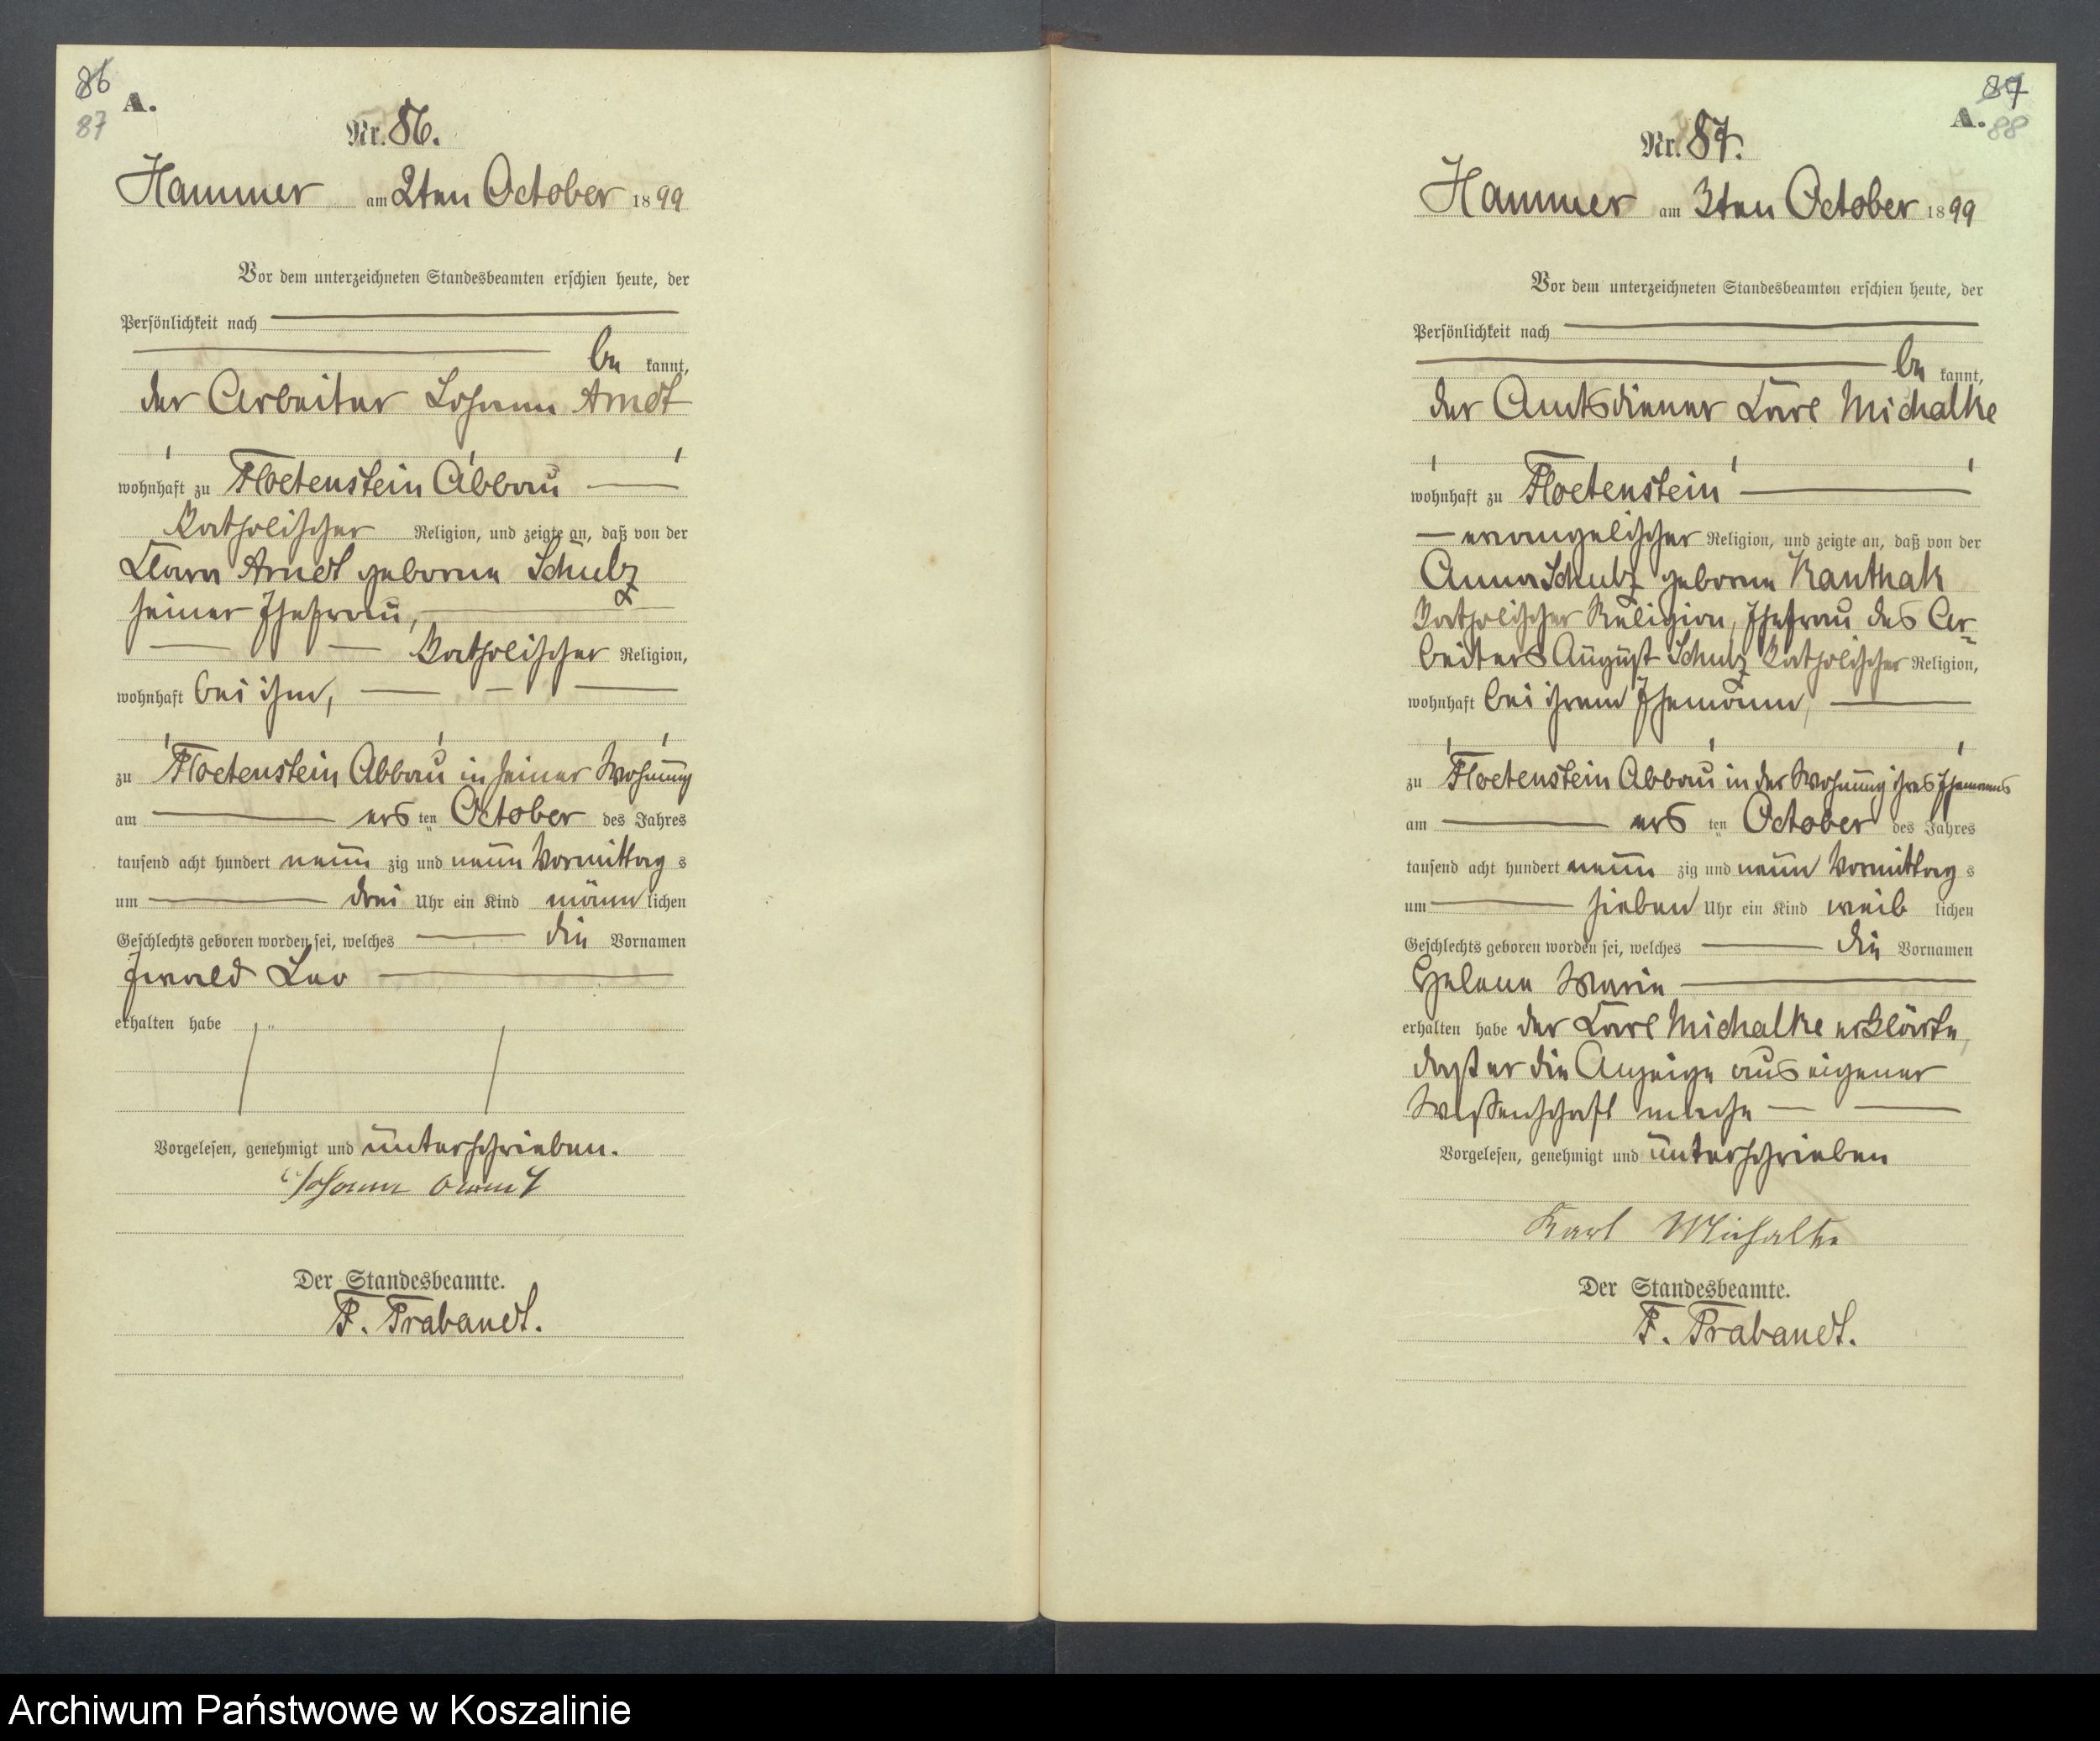 86
87
A.
Nr. 86.
Hammer am 2ten October 1899
Vor dem unterzeichneten Standesbeamten erschien heute, der
Persönlichkeit nach
be kannt,
der Arbeiter Johann Arndt
wohnhaft zu Floetenstein Abbau
katholischer Religion, und zeigte an, daß von der
Clara Arndt geborne Schulz
seiner Ehefrau,
katholischer Religion,
wohnhaft bei ihm,
zu Floetenstein Abbau in seiner Wohnung
am ers ten October des Jahres
tausend acht hundert neun zig und neun Vormittag s
um drei Uhr ein Kind männ lichen
Geschlechts geboren worden sei, welches die Vornamen
Ewald Leo
erhalten habe
Vorgelesen, genehmigt und unterschrieben.
Johann Arndt
Der Standesbeamte.
F. Trabandt.
87
A. 88
Nr. 87.
Hammer am 3ten October 1899
Vor dem unterzeichneten Standesbeamten erschien heute, der
Persönlichkeit nach
be kannt,
der Amtsdiener Carl Michalke
wohnhaft zu Floetenstein
evangelischer Religion, und zeigte an, daß von der
Anna Schulz geborne Kanthak
katholischer Religion, Ehefrau des Ar-
beiters August Schulz katholischer Religion,
wohnhaft bei ihrem Ehemann,
zu Floetenstein Abbau in der Wohnung ihres Ehemanns
am ers ten October des Jahres
tausend acht hundert neun zig und neun Vormittag s
um sieben Uhr ein Kind weib lichen
Geschlechts geboren worden sei, welches die Vornamen
Helene Marie
erhalten habe der Carl Michalke erklärte,
daß er die Anzeige aus eigener
Wissenschaft mache
Vorgelesen, genehmigt und unterschrieben
Karl Michalke
Der Standesbeamte.
F. Trabandt.
Archiwum Państwowe w Koszalinie